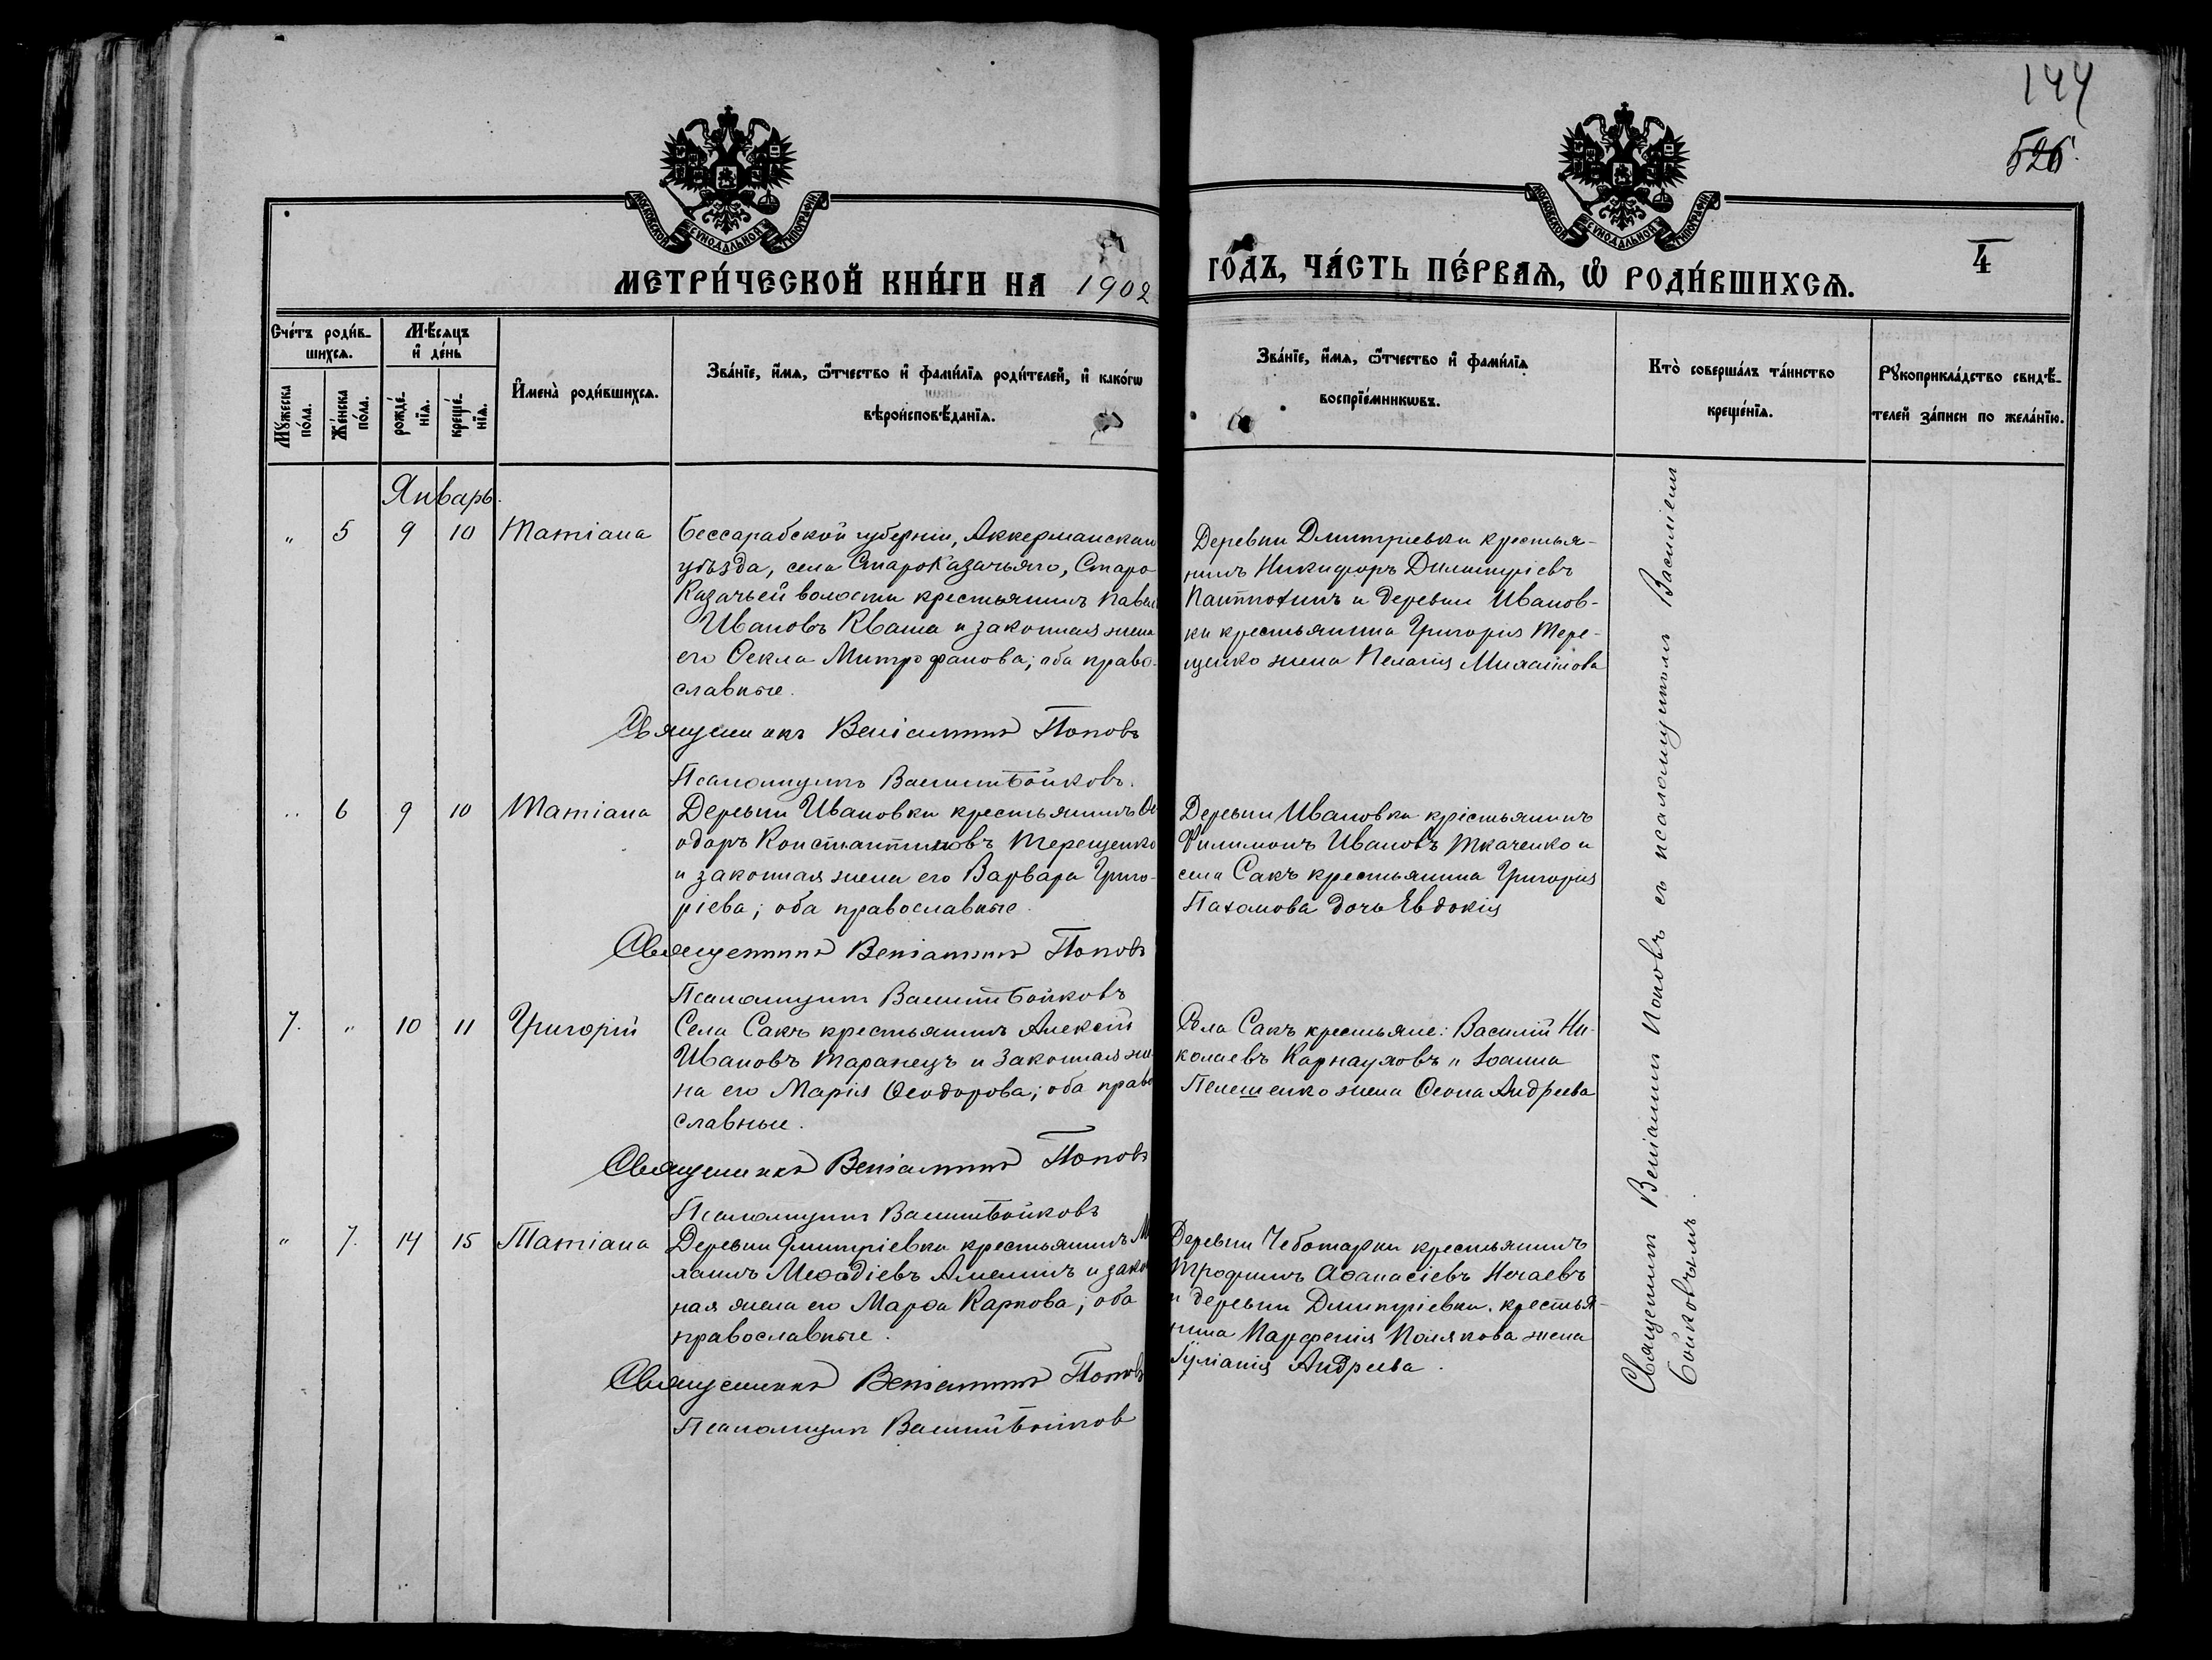 144
526.
МОСКОВСКОЙ СѴНОДАЛЬНОЙ ТИПОГРАФІИ
МОСКОВСКОЙ СѴНОДАЛЬНОЙ ТИПОГРАФІИ
МЕТРИ́ЧЕСКОЙ КНИ́ГИ НА 1902
ГО́ДЪ, ЧА́СТЬ ПЕ́РВАѦ, Ѽ РОДИ́ВШИХСѦ.
4
Сче́тъ роди́в-
шихсѧ.
Мꙋ́жеска по́ла.
Же́нска по́ла.
Мѣ́сѧцъ и҆ де́нь
рожде́-нїѧ.
креще́-нїѧ.
И҆мена̀ роди́вшихсѧ.
Зва́нїе, и҆́мѧ, ѻ҆́тчество и҆ фами́лїѧ роди́телей, и҆ како́гѡ
вѣроисповѣ́данїѧ.
Зва́нїе, и҆́мѧ, ѻ҆́тчество и҆ фами́лїѧ
воспрїе́мникѡвъ.
Кто̀ соверша́лъ та́инство
креще́нїѧ.
Рꙋкоприкла́дство свидѣ́-
телей за́писи по жела́нїю.
Январь.
" 5 9 10 Татіана
Бессарабской губерніи, Аккерманскаго
уѣзда, села СтароКазачьяго, Старо
Казачьей волости крестьянинъ Павелъ
Ивановъ Кваша и законная жена
его Ѳекла Митрофанова; оба право-
славные.
Священникъ Веніаминъ Поповъ
Псаломщикъ Василій Бойковъ.
Деревни Дмитріевки крестья-
нинъ Никифоръ Димитріевъ
и деревни Иванов-
ки крестьянина Григорія Тере-
щенко жена Пелагія
" 6 9 10 Татіана
Деревни Ивановки крестьянинъ Ѳе
одоръ Константиновъ Терещенко
и законная жена его Варвара Григо-
ріева; оба православные.
Священникъ Веніаминъ Поповъ
Псаломщикъ Василій Бойковъ
Деревни Ивановки крестьянинъ
Филимонъ Ивановъ Ткаченко и
села Сакъ крестьянина Григорія
Пахомова дочь Евдокія
7. " 10 11 Григорій
Села Сакъ крестьянинъ Алексій
Ивановъ Таранецъ и законная же-
на его Марія Ѳеодорова; оба право
славные.
Священникъ Веніаминъ Поповъ
Псаломщикъ Василій Бойковъ
Села Сакъ крестьяне: Василій Ни-
колаевъ Карнауховъ и Іоанна
Пелешенко жена Андреева
" 7. 14 15 Татіана
Деревни Дмитріевки крестьянинъ М
хаилъ Меѳодіевъ и закон
ная жена его Марѳа Карпова; оба
православные.
Священникъ Веніаминъ Поповъ
Псаломщикъ Василій Бойков
Деревни Чеботарки крестьянинъ
Трофимъ Аѳанасіевъ Нечаевъ
и деревни Дмитріевки крестья-
нина Парфенія Полякова жена
Іуліанія Андреева.
Священникъ Веніаминъ Поповъ съ псаломщикомъ Василіемъ
Бойковымъ.